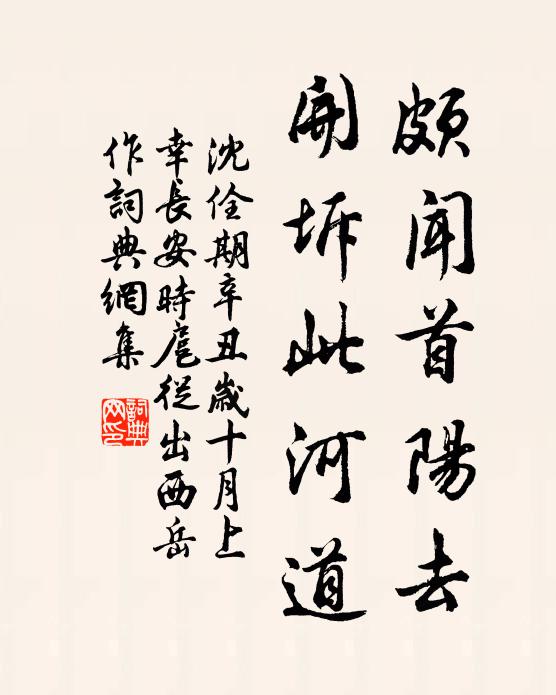 頗聞首陽去
開坼此河道
沈佺期辛丑歲十月上
幸長安時扈從出西岳
作詞典網集
詞典
网印